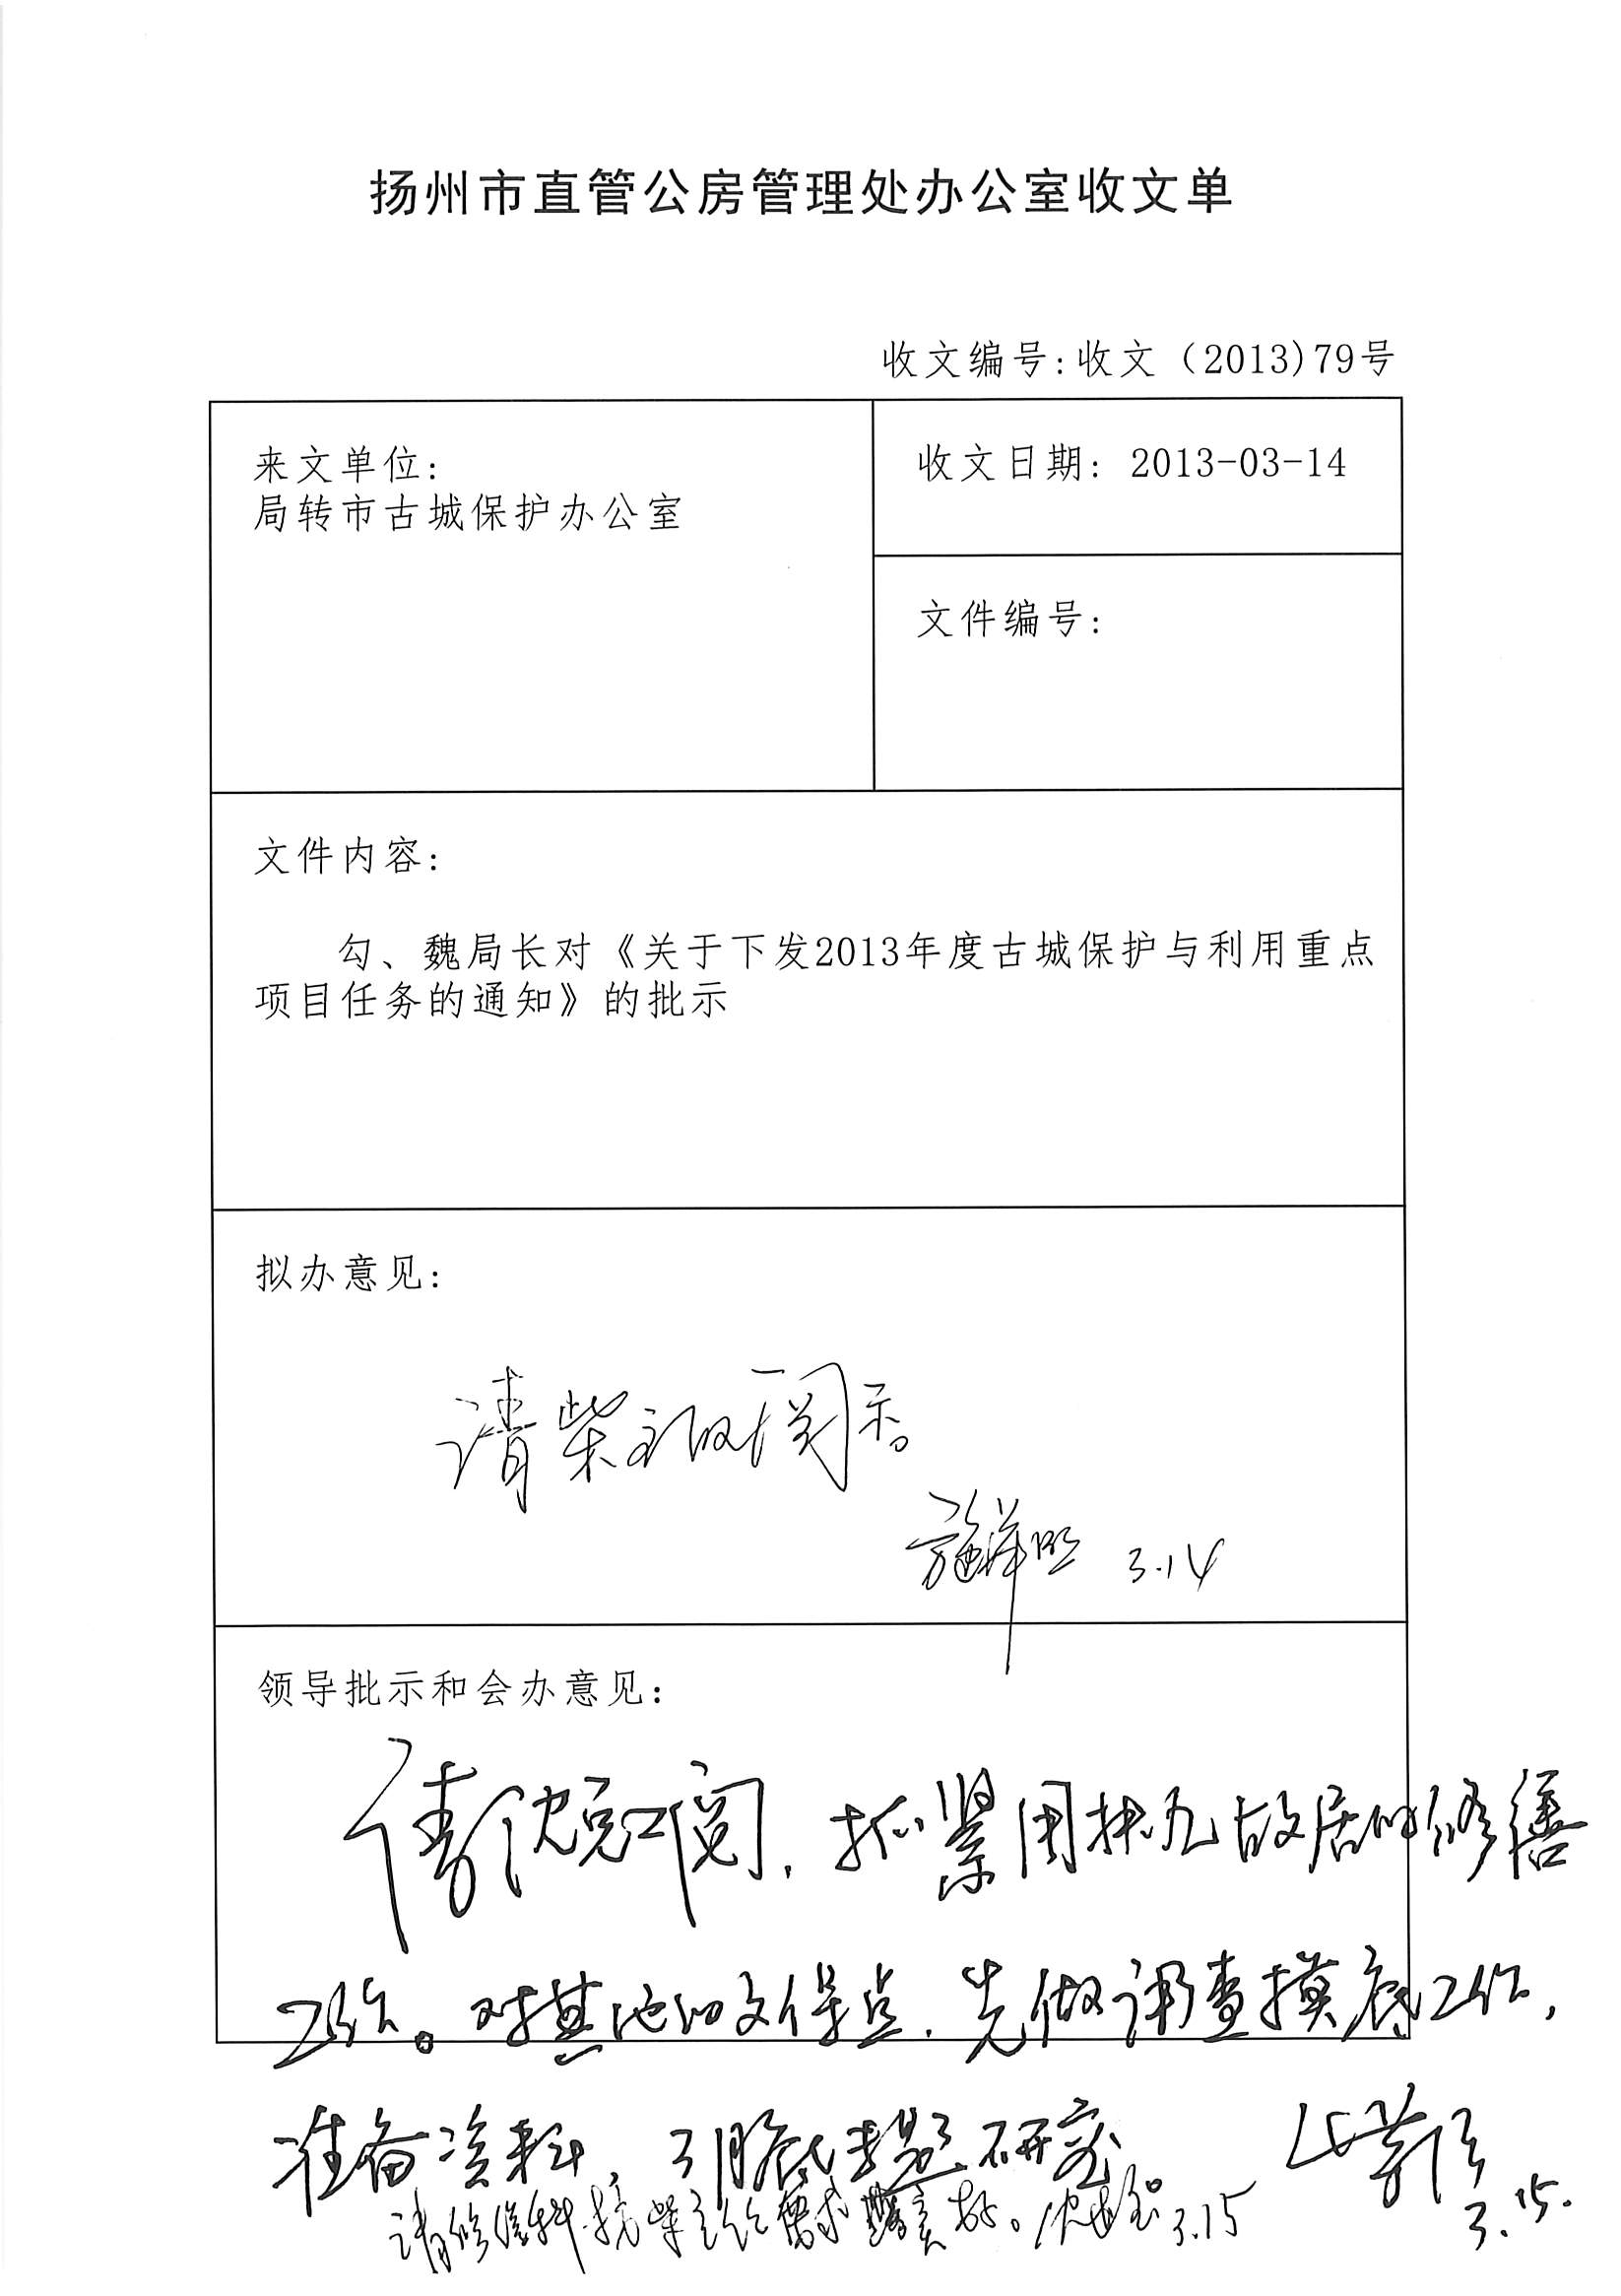 扬州市直管公房管理处办公室收文单
收文编号:收文（2013)79号
来文单位:
局转市古城保护办公室
收文日期: 2013-03-14
文件编号:
文件内容:
勾、魏局长对《关于下发2013年度古城保护与利用重点
项目任务的通知》的批示
拟办意见:
请柴主政阅示。
施 3.14
领导批示和会办意见:
请沈 阅，抓紧 故居的修缮
工作。对其他的文保点，先做调查摸底工作，
准备资料， 月底 研究
3.15.
请修缮科按柴主 要求落实好。沈 3.15